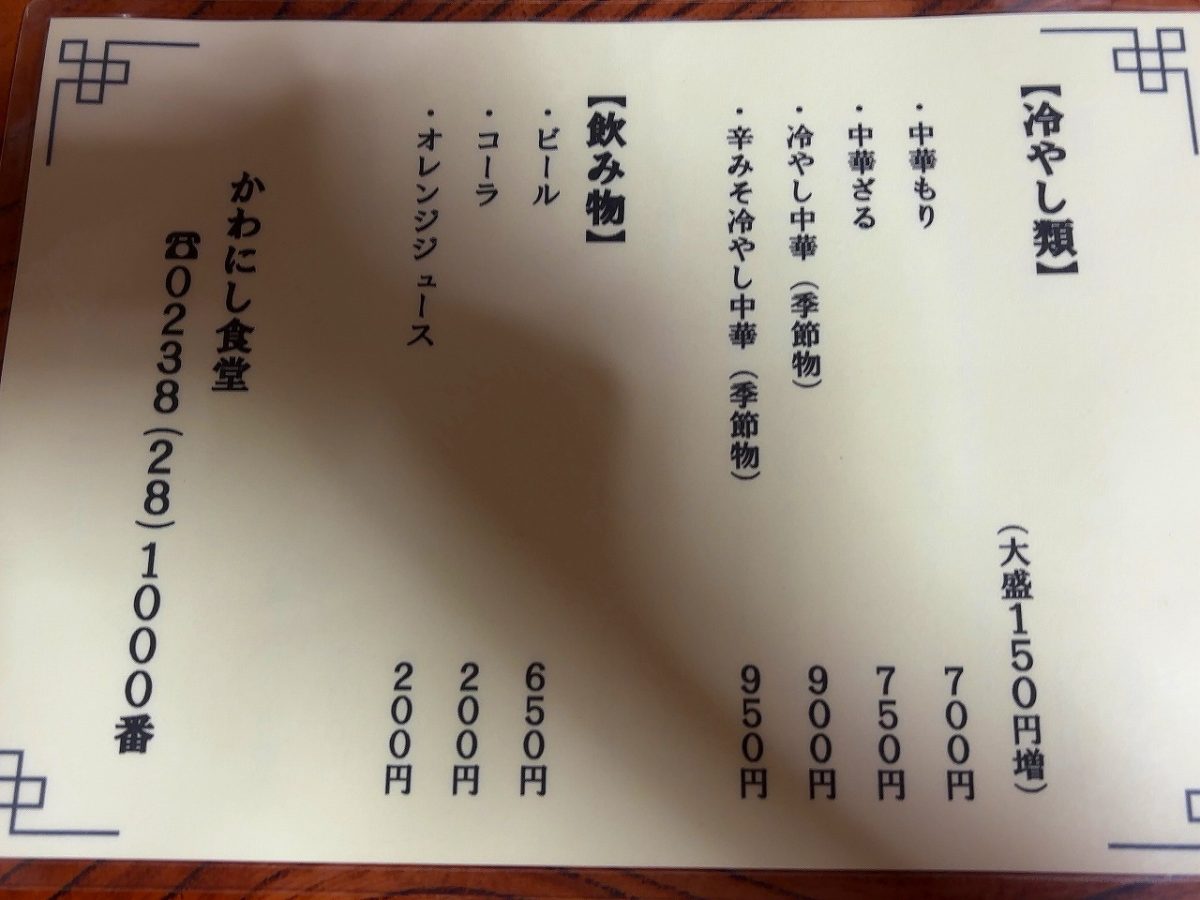 【冷やし類】
(大盛150円増)
・中華もり 700円
・中華ざる 750円
・冷やし中華(季節物) 900円
・辛みそ冷やし中華(季節物) 950円
【飲み物】
・ビール 650円
・コーラ 200円
・オレンジジュース 200円
かわにし食堂
☎0238(28)1000番